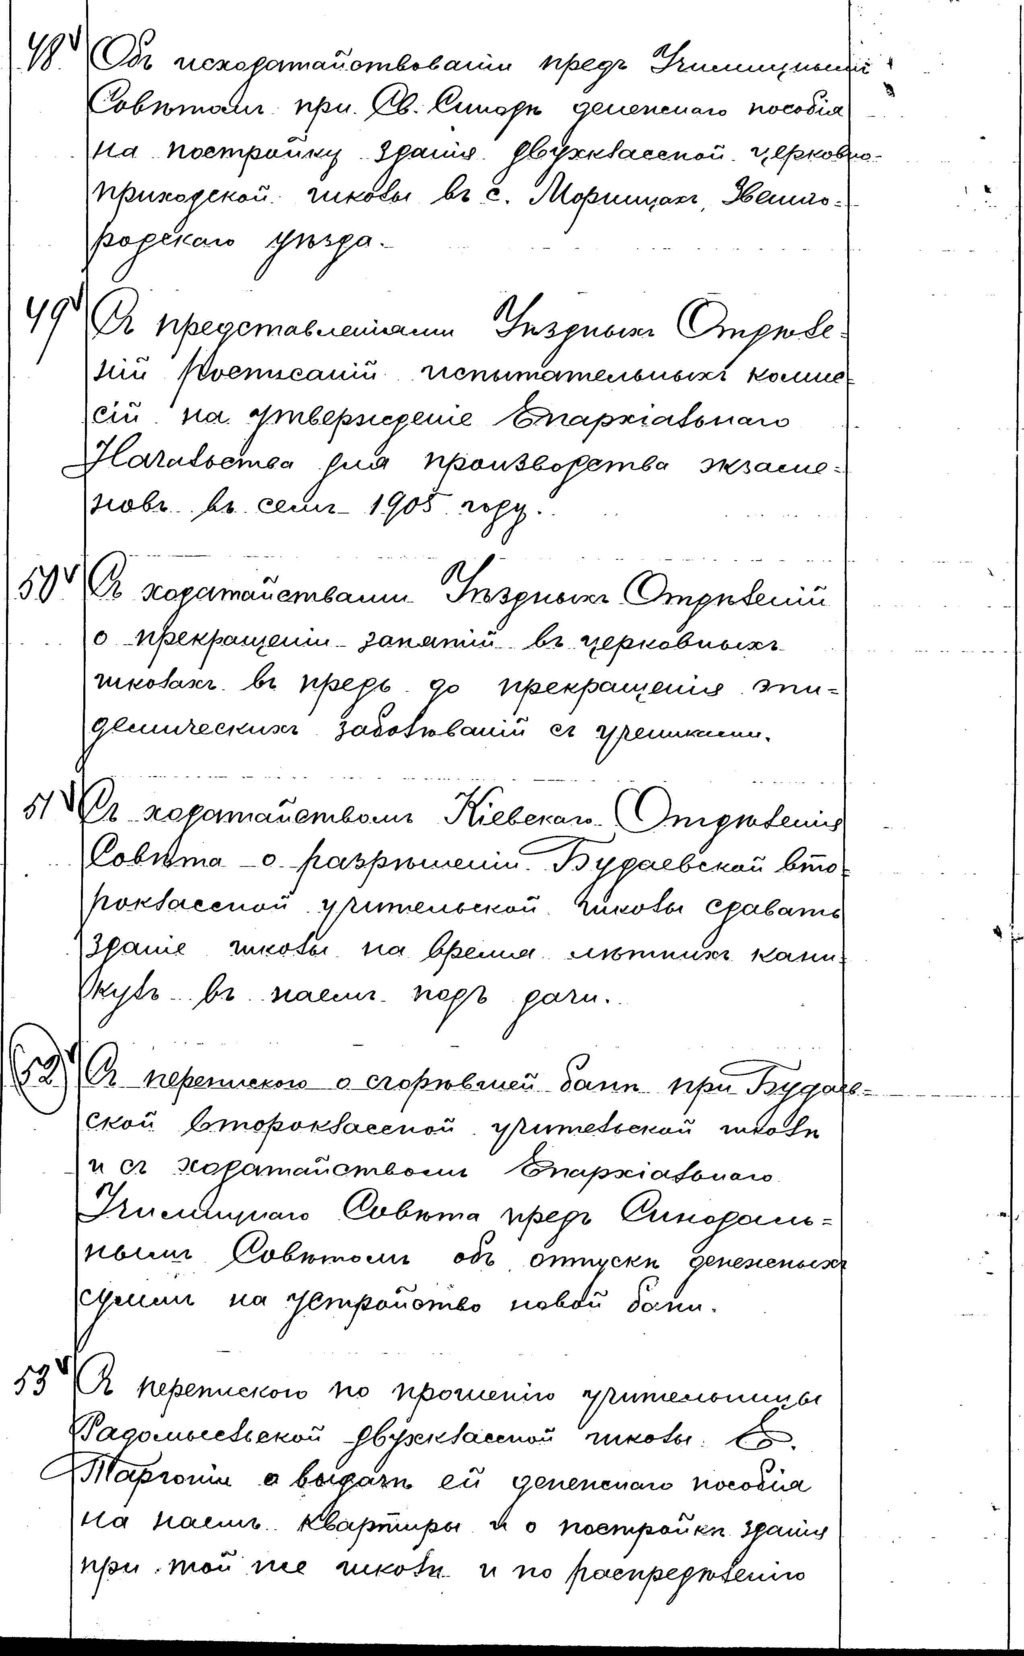 48. Объ исходатайствованіи предъ Училищнымъ
Совѣтомъ при Св. Синодѣ денежнаго пособія
на постройку зданія двухклассной церковно-
приходской школы въ с. Моринцахъ, Звениго-
родскаго уѣзда.
49 Съ представленіями Уѣздныхъ Отдѣле-
ній росписаній испытательныхъ комис-
сій на утвержденіе Епархіальнаго
Начальства для производства экзаме-
новъ въ семъ 1905 году.
50. Съ ходатайствами Уѣздныхъ Отдѣленій
о прекращеніи занятій въ церковныхъ
школахъ въ предь до прекращенія эпи-
демическихъ заболѣваній съ учениками.
51 Съ ходатайствомъ Кіевскаго Отдѣленія
Совѣта о разрѣшеніи Будаевской вто-
роклассной учительской школы сдавать
зданіе школы на время лѣтнихъ кани-
кулъ въ наемъ подъ дачи.
52 Съ перепискою о сгорѣвшей банѣ при Будаев-
ской второклассной учительской школѣ
и съ ходатайствомъ Епархіальнаго
Училищнаго Совѣта предъ Синодаль-
нымъ Совѣтомъ объ отпускѣ денежныхъ
суммъ на устройство новой бани.
53 Съ перепискою по прошенію учительницы
Радомысльской двухклассной школы Е.
Таргоніи о выдачѣ ей денежнаго пособія
на наемъ квартиры и о постройкѣ зданія
при той же школѣ и по распредѣленію